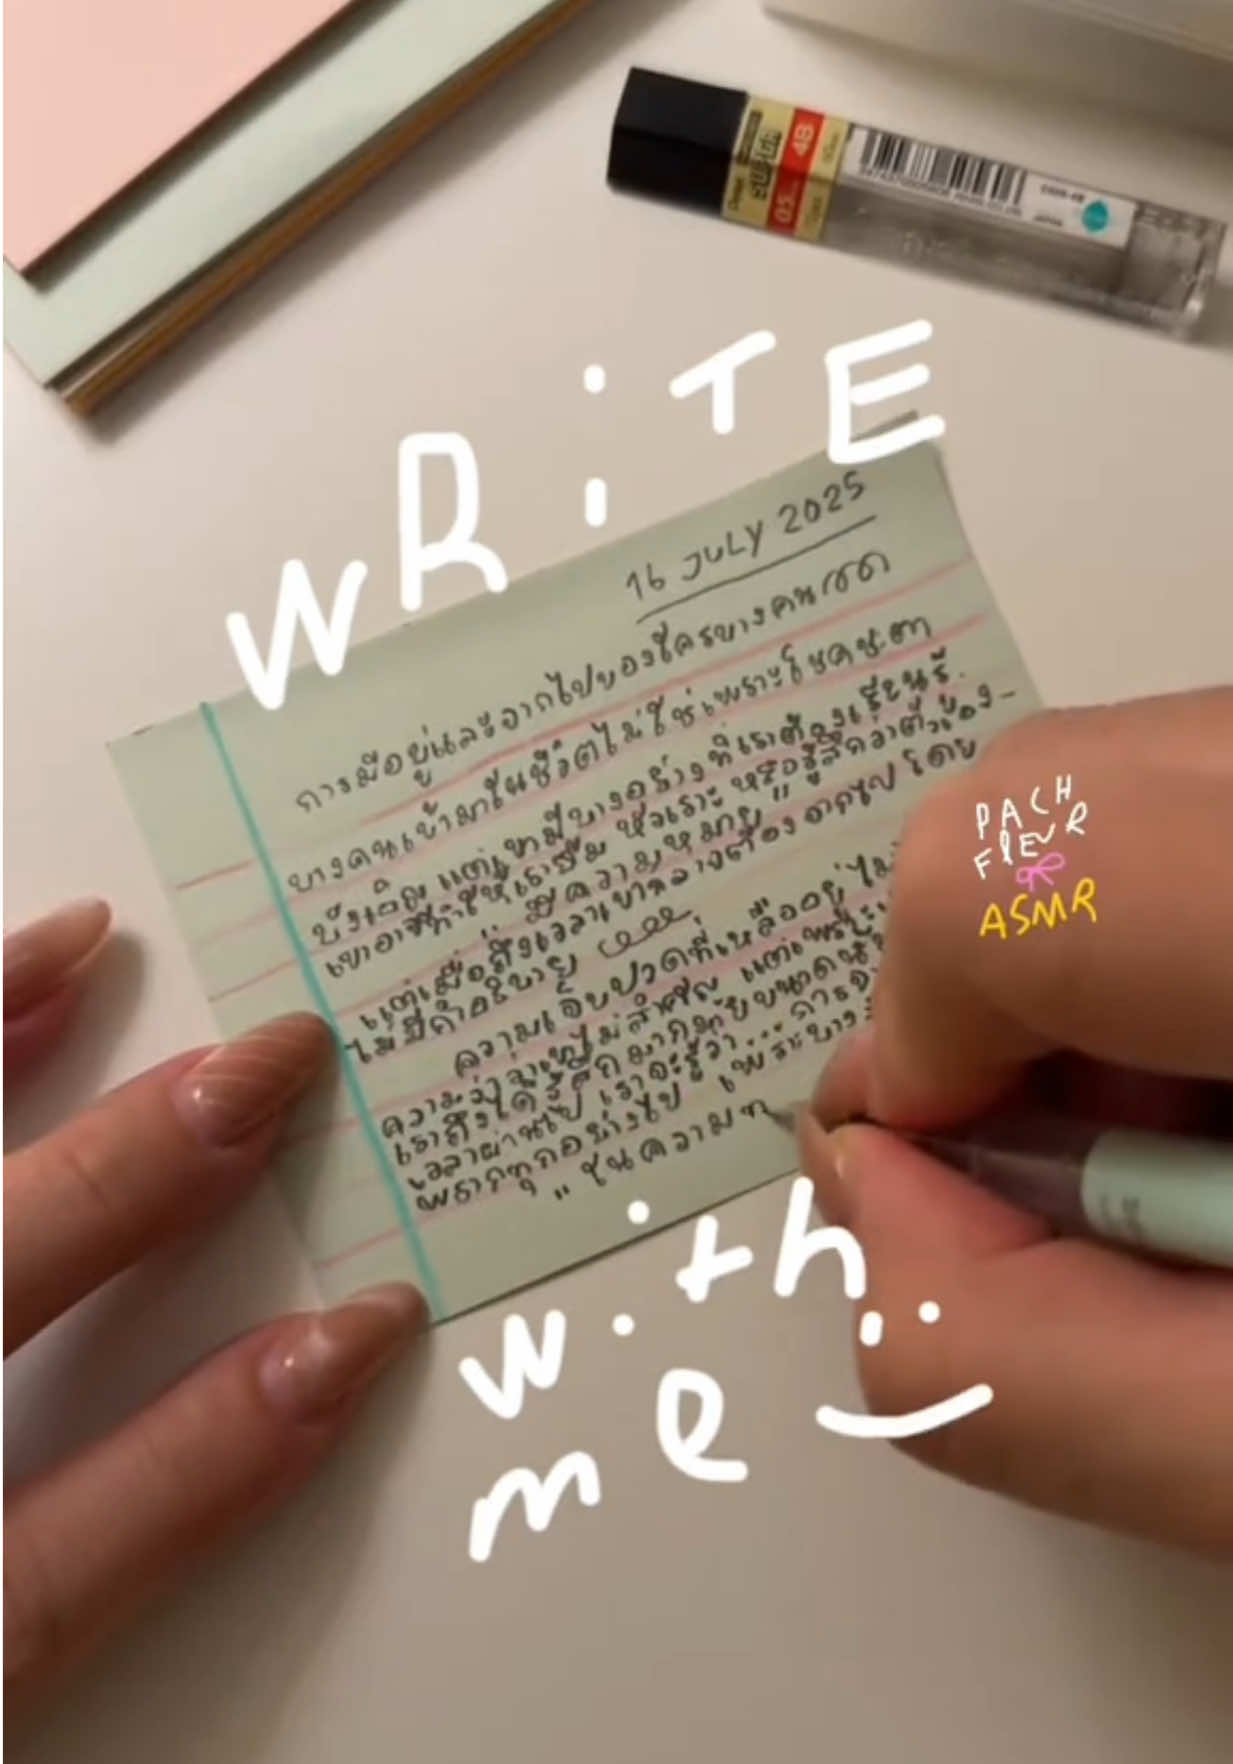 WRiTE
Pentel
SUPER
0.5
4B
JAPAN
16 JULY 2025
การมีอยู่และจากไปของใครบางคน
บางคนเข้ามาในชีวิตไม่ใช่เพราะโชคชะตา
บังเอิญ แต่เขามีบางอย่างที่เราต้องเรียนรู้
เขาอาจทำให้เรายิ้ม หัวเราะ หรือรู้สึกว่าตัวเอง-
"มีความหมาย"
แต่เมื่อถึงเวลาเขากลางต้อง จากไป โดย
ไม่มีคำอธิบาย
ความเจ็บปวดที่เหลืออยู่ ไม่
ความว่าเขาไม่สำคัญ แต่เพราะ
เราถึงได้รู้สึกมากมายขนาดนี้
เวลาผ่านไป เราจะรู้ว่า "การจ
พรากทุกอย่างไป เพราะบาง
"ในความท
PACH
FLEUR
ASMR
with
me